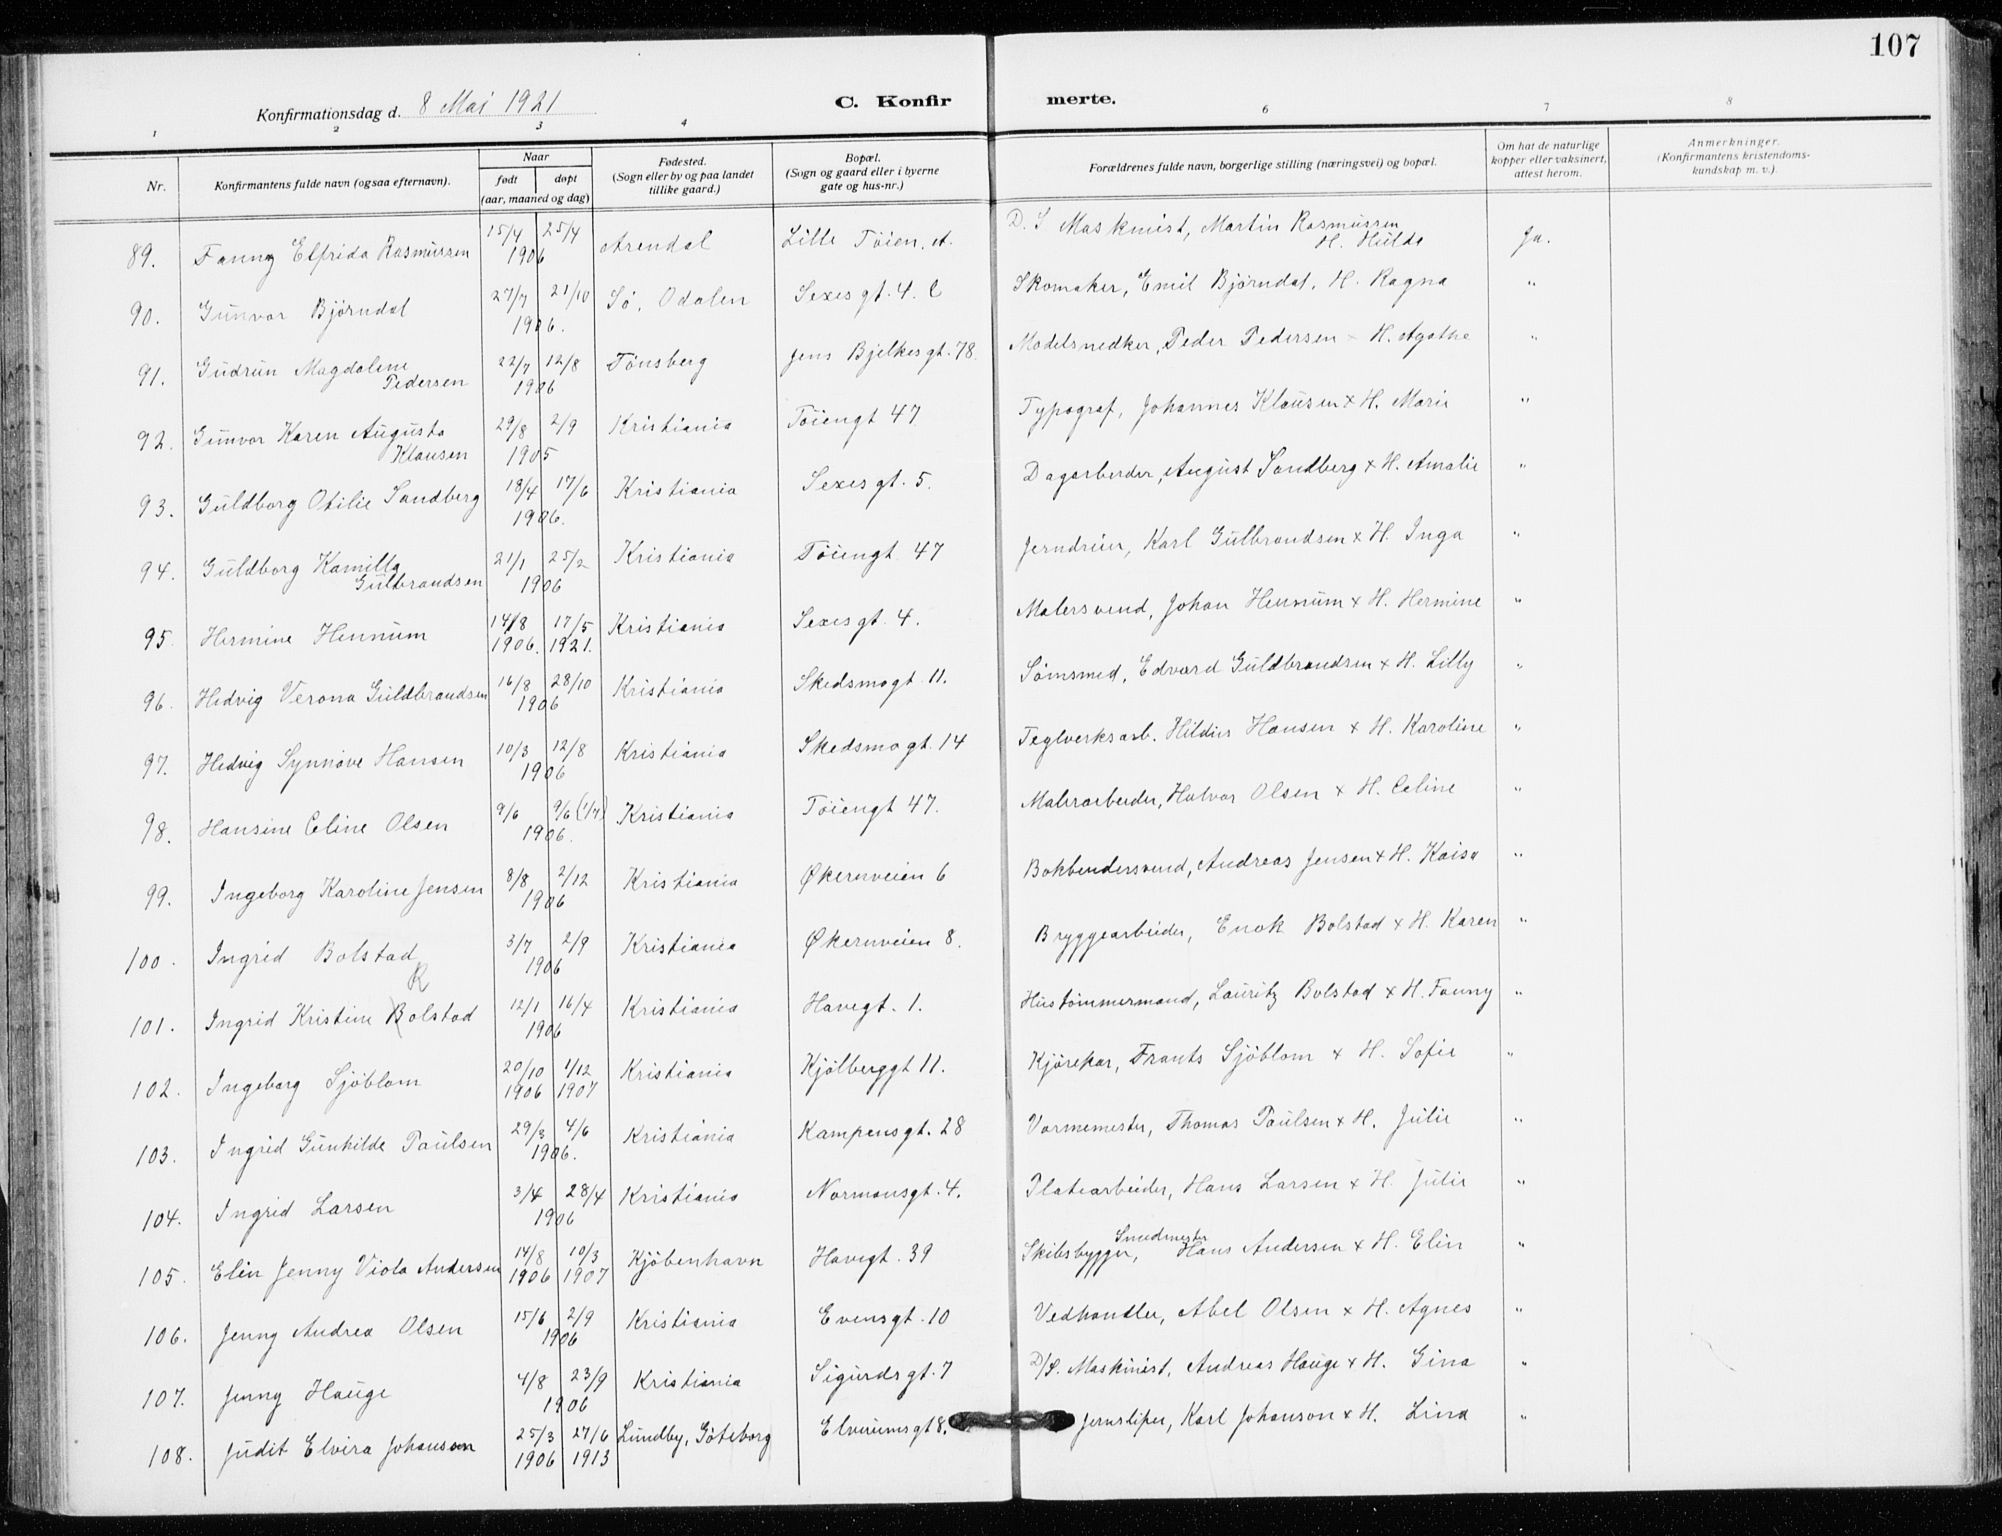 107
Konfirmationsdag d. 8 Mai 1921
C. Konfirmerte.
1 2 3 4 6 7 8
Nr. Konfirmantens fulde navn (ogsaa efternavn). Naar født døpt (aar, maaned og dag) Fødested. (Sogn eller by og paa landet tillike gaard.) Bopæl. (Sogn og gaard eller i byerne gate og hus-nr.) Forældrenes fulde navn, borgerlige stilling (næringsvei) og bopæl. Om hat de naturlige kopper eller vaksinert, attest herom. Anmerkninger. (Konfirmantens kristendoms-kundskap m. v.).
89. Fanny Elfrida Rasmussen 15/4 25/4 1906 Arendal Lille Töien. A. D. S Maskinist, Martin Rasmussen H. Hulda Ja.
90. Gunvor Björndal 27/7 21/10 1906. Sö. Odalen Sexesgt. 4. C Skomaker, Emil Björndal, H. Ragna "
91. Gudrun Magdalene Pedersen 22/7 12/8 1906 Tönsberg Jens Bjelkesgt. 78. Modelsnedker, Peder Pedersen - H. Agathe "
92. Gunvor Karen Augusta Klausen 29/8 2/9 1905 Kristiania Töiengt 47 Typograf, Johannes Klausen x H. Marie "
93. Guldborg Otilie Sandberg 18/4 17/6 1906. Kristiania Sexesgt. 5. Dagarbeider, August Sandberg x H. Amalie "
94. Guldborg Kamilla Gulbrandsen 21/1 25/2 1906 Kristiania Töiengt. 47 Jerndreier, Karl Gulbrandsen x H. Inga "
95. Hermine Hennum 14/8 1906. 17/5 1921. Kristiania Sexesgt. 4. Malersvend, Johan Hennum x H. Hermine "
96. Hedvig Verona Guldbrandsen 16/8 28/10 1906 Kristiania Skedsmogt. 11. Sömsmed, Edvard Guldbrandsen x H. Lilly "
97. Hedvig Synnöve Hansen 10/3 12/8 1906 Kristiania Skedsmogt. 14 Teglverksarb. Hildus Hansen x H. Karoline "
98. Hansine Celine Olsen 9/6 9/6 (1/7) 1906. Kristiania Töiengt 47. Malerarbeider, Halvor Olsen x H. Celine "
99. Ingeborg Karoline Jensen 8/8 2/12 1906 Kristiania Økernveien 6 Bokbindersvend, Andreas Jensen x H. Kaisa "
100. Ingrid Bolstad 3/7 2/9 1906 Kristiania Økernveien 8. Bryggearbeider, Enok Bolstad x H. Karen "
R
101. Ingrid Kristine Bolstad 12/1 16/4 1906 Kristiania Havegt. 1. Hustömmermand, Lauritz Bolstad x H. Fanny "
102. Ingeborg Sjöblom 20/10 1906 1/12 1907 Kristiania Kjölberggt 11. Kjörekar, Frants Sjöblom x H. Sofie "
103. Ingrid Gunhilde Paulsen 29/3 4/6 1906. Kristiania Kampensgt. 28 Varmemester, Thomas Paulsen x H. Julie "
104. Ingrid Larsen 3/4 28/4 1906 Kristiania Normansgt. 4. Platearbeider, Hans Larsen x H. Julie "
105. Elin Jenny Viola Andersen 14/8 1906 10/3 1907 Kjöbenhavn Havegt. 39 Skibsbygger, Smedmester Hans Andersen x H. Elin "
106. Jenny Andrea Olsen 15/6 2/9 1906 Kristiania Evensgt. 10 Vedhandler, Abel Olsen x H. Agnes "
107. Jenny Hauge 4/8 23/9 1906 Kristiania Sigurdsgt. 7 D/S. Maskinist, Andreas Hauge x H. Gina "
108. Judit Elvira Johansson 25/3 1906 27/6 1913 Lundby, Göteborg Elverumsgt 8. Jernsliper, Karl Johanson x H. Lina "